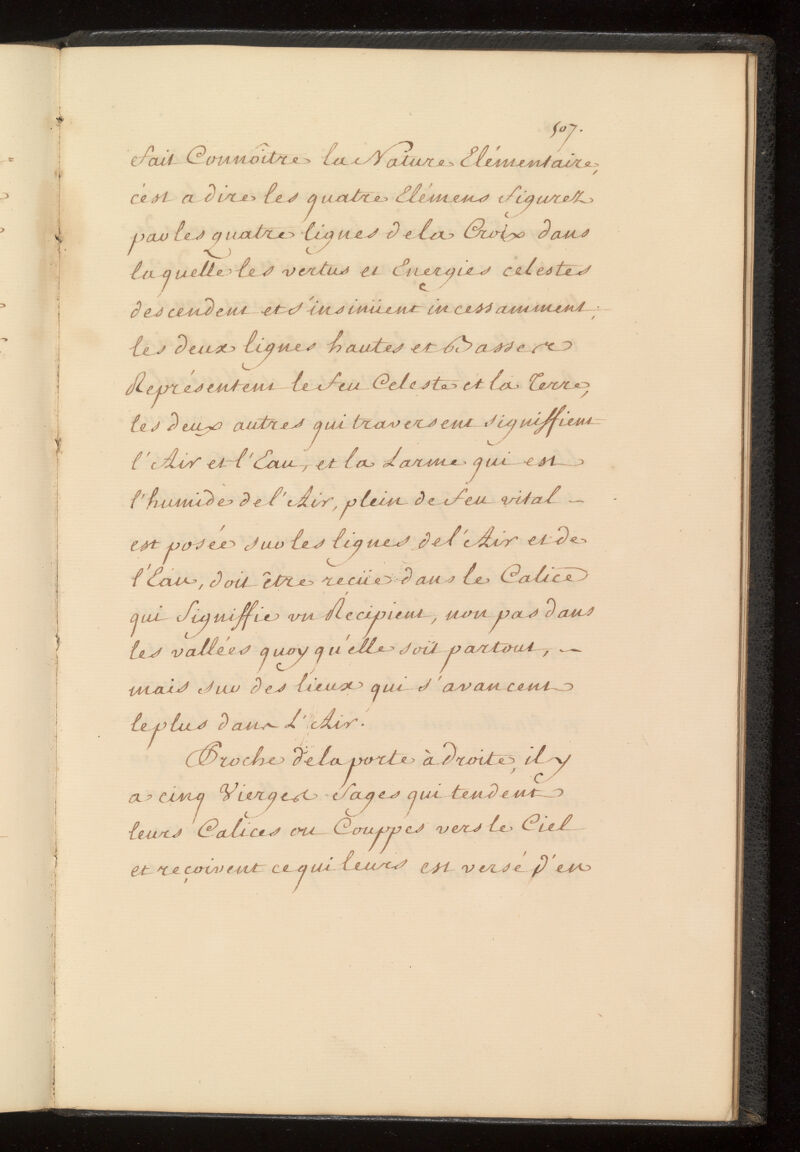 507.
fait Connoître la Nature Elémentaire,
c'est a dire les quatre Elémens figurez
par les quatre lignes de la Croix dans
laquelle les vertus et Energies celestes
descendent et s'insinüent incessamment;
les deux lignes hautes et Basses
Représentent le feu Celeste et la Terre,
les deux autres qui traversent signiffient
l'Air et l'Eau, et la Larme qui est
l'humide de l'Air, plein de feu vital –
est posée sur les lignes de l'Air et de
l'Eau, doit être reçüe dans le Calice
qui signiffie vn Récipient, non pas dans
les vallées quoy qu'elle soit partout, –
mais sur des lieux qui s'avancent
le plus dans L'Air.
Proche de la porte à droite, il y
a cinq Vierges sages qui tendent
leurs Calices ou Couppes vers le Ciel
et reçoivent ce qui leurs est versé d'en